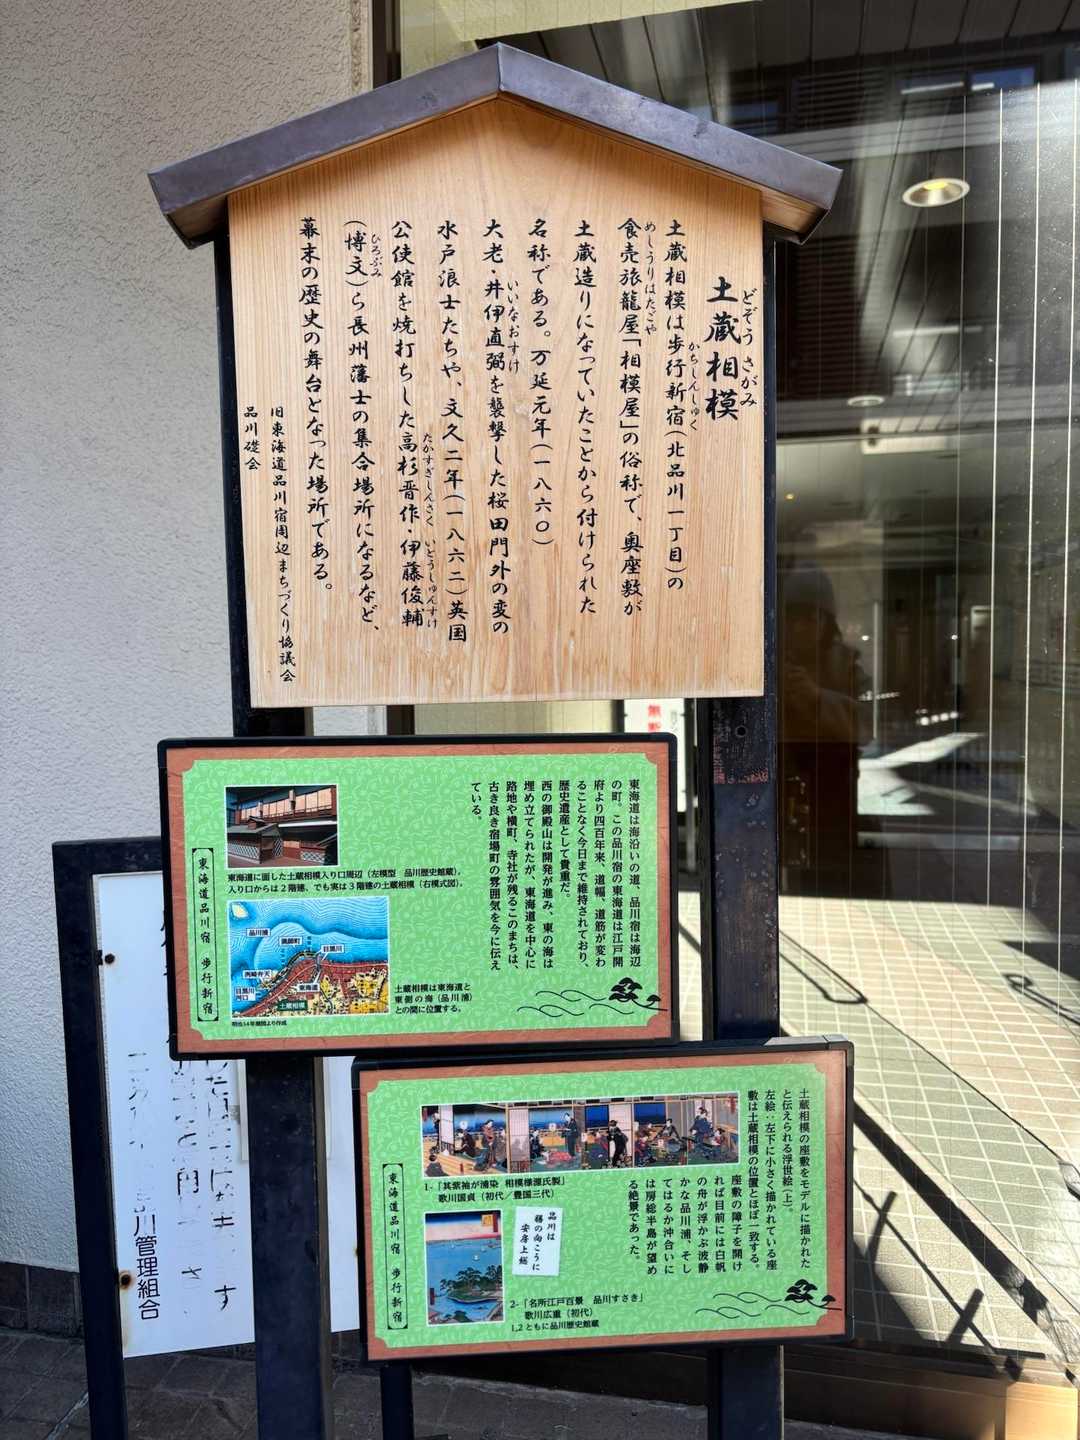 土蔵相模
どぞう さがみ
土蔵相模は歩行新宿(北品川一丁目)の
かちしんしゅく
食売旅籠屋「相模屋」の俗称で、奥座敷が
めしうりはたごや
土蔵造りになっていたことから付けられた
名称である。万延元年(一八六〇)
大老・井伊直弼を襲撃した桜田門外の変の
いいなおすけ
水戸浪士たちや、文久二年(一八六二)英国
公使館を焼打ちした高杉晋作・伊藤俊輔
たかすぎしんさく いとうしゅんすけ
(博文)ら長州藩士の集合場所になるなど、
ひろぶみ
幕末の歴史の舞台となった場所である。
旧東海道品川宿周辺まちづくり協議会
品川礎会
東海道は海沿いの道、品川宿は海辺
の町。この品川宿の東海道は江戸開
府より四百年来、道幅、道筋が変わ
ることなく今日まで維持されており、
歴史遺産として貴重だ。
西の御殿山は開発が進み、東の海は
埋め立てられたが、東海道を中心に
路地や横町、寺社が残るこのまちは、
古き良き宿場町の雰囲気を今に伝え
ている。
東海道に面した土蔵相模入り口周辺(左模型 品川歴史館蔵)。
入り口からは2階建、でも実は3階建の土蔵相模(右模式図)。
東海道品川宿 歩行新宿
品川浦
猟師町
目黒川
洲崎弁天
目黒川
河口
東海道
土蔵相模
明治14年地図より作成
土蔵相模は東海道と
東側の海(品川浦)
との間に位置する。
土蔵相模の座敷をモデルに描かれた
と伝えられる浮世絵(上)。
左絵:左下に小さく描かれている座
敷は土蔵相模の位置とほぼ一致する。
座敷の障子を開け
れば目前には白帆
の舟が浮かぶ波静
かな品川浦、そし
てはるか沖合いに
は房総半島が望め
る絶景であった。
1-「其紫袖が浦染 相模様源氏製」
歌川国貞(初代/豊国三代)
品川は
膳の向こうに
安房上総
2-「名所江戸百景 品川すさき」
歌川広重(初代)
1,2ともに品川歴史館蔵
東海道品川宿 歩行新宿
川管理組合